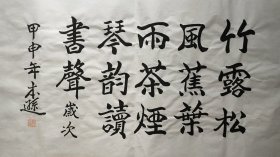 竹露松
風蕉葉
雨茶煙
琴韵讀
書聲 歲次
甲申年 本遜